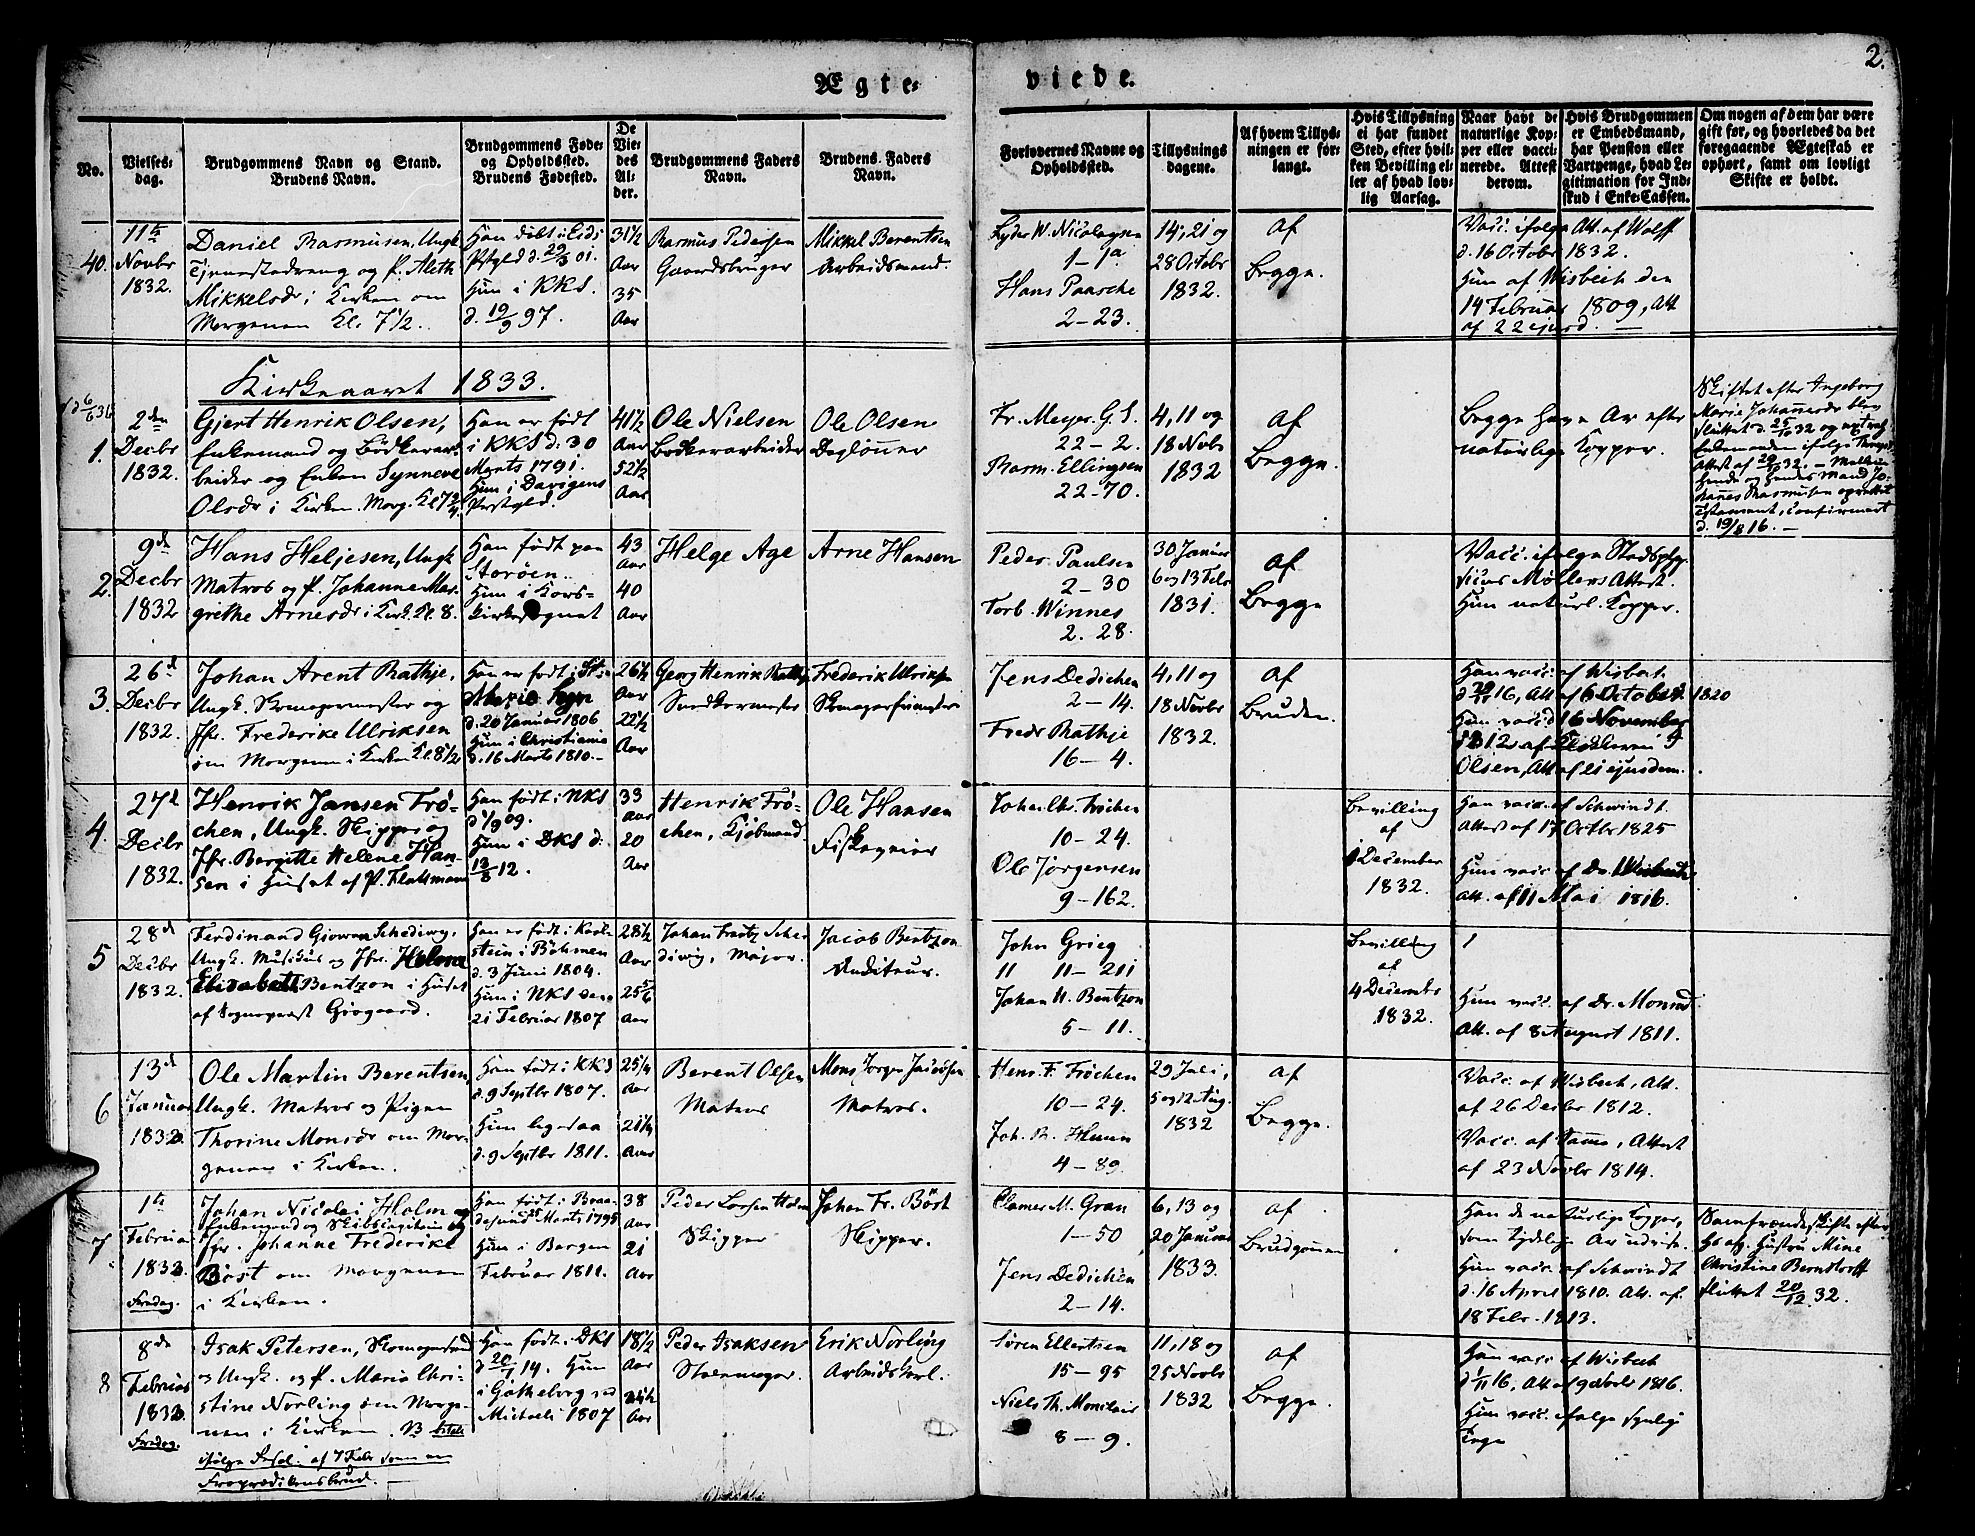 Ægte-
viede.
2.
No.
Vielses-
dag.
Brudgommens Navn og Stand.
Brudens Navn.
Brudgommens Føde-
og Opholdssted.
Brudens Fødested.
De
Vie-
des
Al-
der.
Brudgommens Faders
Navn.
Brudens Faders
Navn.
Forlovernes Navne og
Opholdssted.
Tillysnings
dagene.
Af hvem Tillys-
ningen er for-
langt.
Hvis Tillysning
ei har fundet
Sted, efter hvil-
ken Bevilling el-
ler af hvad lov-
lig Aarsag.
Naar havt de
naturlige Kop-
per eller vacci-
nerede. Attest
derom.
Hvis Brudgommen
er Embedsmand,
har Pension eller
Vartpenge, hvad Le-
gitimation for Ind-
skud i Enke-Cassen.
Om nogen af dem har være
gift før, og hvorledes da det
foregaaende Ægteskab er
ophørt, samt om lovligt
Skifte er holdt.
40.
11te
Novbr
1832.
Daniel Rasmusen, Ungk.
og P. Aleth
Mikkelsdr i Kirken om
Morgenen Kl. 7½.
Han døbt i Eids
Pstgld d. 29/3 01.
Hun i KKS.
d. 19/9 97.
31½
Aar
35
Aar
Rasmus Pedersen
Gaardsbruger
Mikkel Berentsen
Arbeidsmand.
Lyder W. Nicolaysen
1-1a
Hans Paasche
2-23.
14, 21 og
28 Octobr
1832.
af
Begge.
Vacc. ifølge Att. af Wolff
d. 16 Octobr 1832.
Hun af Wisbech den
14 Februar 1809, Att
af 22 ejusd.
Kirkeaaret 1833.
1.
2den
Decbr
1832.
Gjert Henrik Olsen,
Enkemand og Bødkerar-
beider og Enken Synneve
Olsdr i Kirken. Morg. Kl 7¾
Han er født
i KKS d: 30
Marts 1791.
Hun i Davigens
Pstgld.
41½
Aar
52½
Aar
Ole Nielsen
Bødkerarbeider
Ole Olsen
Dagløner
Fr. Meyer. G. S.
22-2.
Rasm. Ellingsen
22-70.
4, 11 og
18 Novb
1832
af
Begge.
Begge have Ar efter
naturlige Kopper.
Skiftet efter Ingeborg
Marie Johannesdr blev
sluttet d. 32 og
Enkemanden ifølge
Attest af 32. - Mellem
hende og hendes Mand Jo-
hannes Rasmusen oprettet
Testament, Confirmeret
d. 19/8 16. -
2.
9de
Decbr
1832
Hans Heljesen, Ungk.
Matros og P. Johanne Mar-
grethe Arnesdr i Kirk. Kl. 8.
Han født paa
Storøen.
Hun i Kors-
kirkesognet
43
Aar
40
Aar
Helge Age
Arne Hansen
Peder Paulsen
2-30
Torb. Winnes
2. 28.
30 Januar
6 og 13 Febr
1831.
af
Begge
Vacc. ifølge Stadsphy-
sicus Møllers Attest.
Hun naturl. Kopper.
3.
26d
Decbr
1832.
Johan Arent Rathje,
Ungk. Skomagermester og
Jfr. Frederike Ulriksen
om Morgenen i Kirken Kl. 8½
Han er født i St:
Marie Sogn
d. 20 Januar 1806
Hun i Christiania
d. 16 Marts 1810.
26½
Aar
22½
Aar
Georg Henrik Rathje
Snedkermester
Frederik Ulriksen
Jens Dedichen
2-14.
Fredr Rathje
16-4.
4, 11 og
18 Novbr
1832.
af
Bruden.
Han vacc. af Wisbech
16, Att. af 6 October. 1820
Hun vacc d 16 November
1812 af
Olsen, Att. af 21 ejusdem.
4.
27d
Decbr
1832.
Henrik Jansen Frö-
chen, Ungk. Skipper og
Jfr. Bergitte Helene Han-
sen i Huset af P. Flottmann
Han født i NKS
d 1/9 09.
Hun i DKS d:
13/8 12.
33
Aar
20
Aar
Henrik Frö-
chen, Kjøbmand.
Ole Hansen
Johan Chr. Fröchen
10-24.
Ole Jörgensen
9-162.
Bevilling
af
1 December
1832.
Han vacc. af Schwindt
Attest af 17 Octbr 1825
Hun vacc. af Dr. Wisbech
Att. af 11 Mai 1816.
5
28d
Decbr
1832.
Ferdinand Giovanni Schediwy,
Ungk. Musikus og Jfr. Helene
Elisabeth Bentzon i Huset
af Sognepræst Giørgaard.
Han er født i Karl-
stein i Böhmen
d. 3 Juni 1804.
Hun i NKS den
21 Februar 1807
28½
Aar
25 5/6
Aar
Johan Frantz Sche-
diwy, Major.
Jacob Bentzon
Auditeur.
John Grieg
11 11-211
Johan U. Bentzon
5-11.
Bevilling
af
4 Decembr
1832.
Hun vacc. af Dr. Monrad
Att. af 8 August 1811.
6
13d
Januar
1833
Ole Martin Berentsen,
Ungk. Matros og Pigen
Thorine Monsdr om Mor-
genen i Kirken.
Han født i KKS
d. 9 Septbr 1807.
Hun ligesaa
d. 9 Septbr 1811.
25¼
Aar
21¼
Aar
Berent Olsen
Matros
Mons Jørgen Jacobsen
Matros.
Henr. F. Fröchen
10-24.
Joh. B. Hvun
4-89.
29 Juli,
5 og 12 Aug.
1832
af
Begge.
Vacc. af Wisbech, Att.
af 26 Decbr 1812.
Vacc. af Samme, Attest
af 23 Novbr 1814.
7
1te
Februar
1833.
Fredag.
Johan Nicolai Holm
Enkemand og Skibscapitain og
Jfr. Johanne Frederike
Böst om Morgenen
i Kirken.
Han født i Braa-
desund Marts 1795
Hun i Bergen
Februar 1811.
38
Aar
21
Aar
Peder Larsen Holm
Skipper
Johan Fr. Böst
Skipper.
Clamer M. Gran
1-50
Jens Dedichen
2-14.
6, 13 og
20 Januar
1833.
af
Brudgommen
Han de naturlige Kopper,
som tydelige Ar udvise.
Hun vacc. af Schwindt
d. 16 April 1810. Att. af.
18 Febr. 1813.
Samfrændeskifte efter
Hs afg. Hustru Mine
Christine Berndtorff
sluttet 20/12 32.
8
8de
Februar
1833
Fredag.
Isak Petersen, Skomagersvend
og Ungk. og P. Maria Chri-
stine Norling om Morge-
nen i Kirken. NB betalt
ifølge af 7 Febr som en
Froprædikensbrud.
Han født i DKS
d 20/ 14. Hun
i Gøtheborg ved
Michaeli 1807
18½
Aar
Aar
Peder Isaksen
Erik Norling
Arbeidskarl.
Søren Ellertsen
15-95
Niels Th. Monclair
8-9.
11, 18 og
25 Novbr
1832
af
Begge.
Han vacc. af Wisbech
d 1/11 16. Att. af 9 Decbr 1816.
Hun vacc. ifølge synlige
Tegn